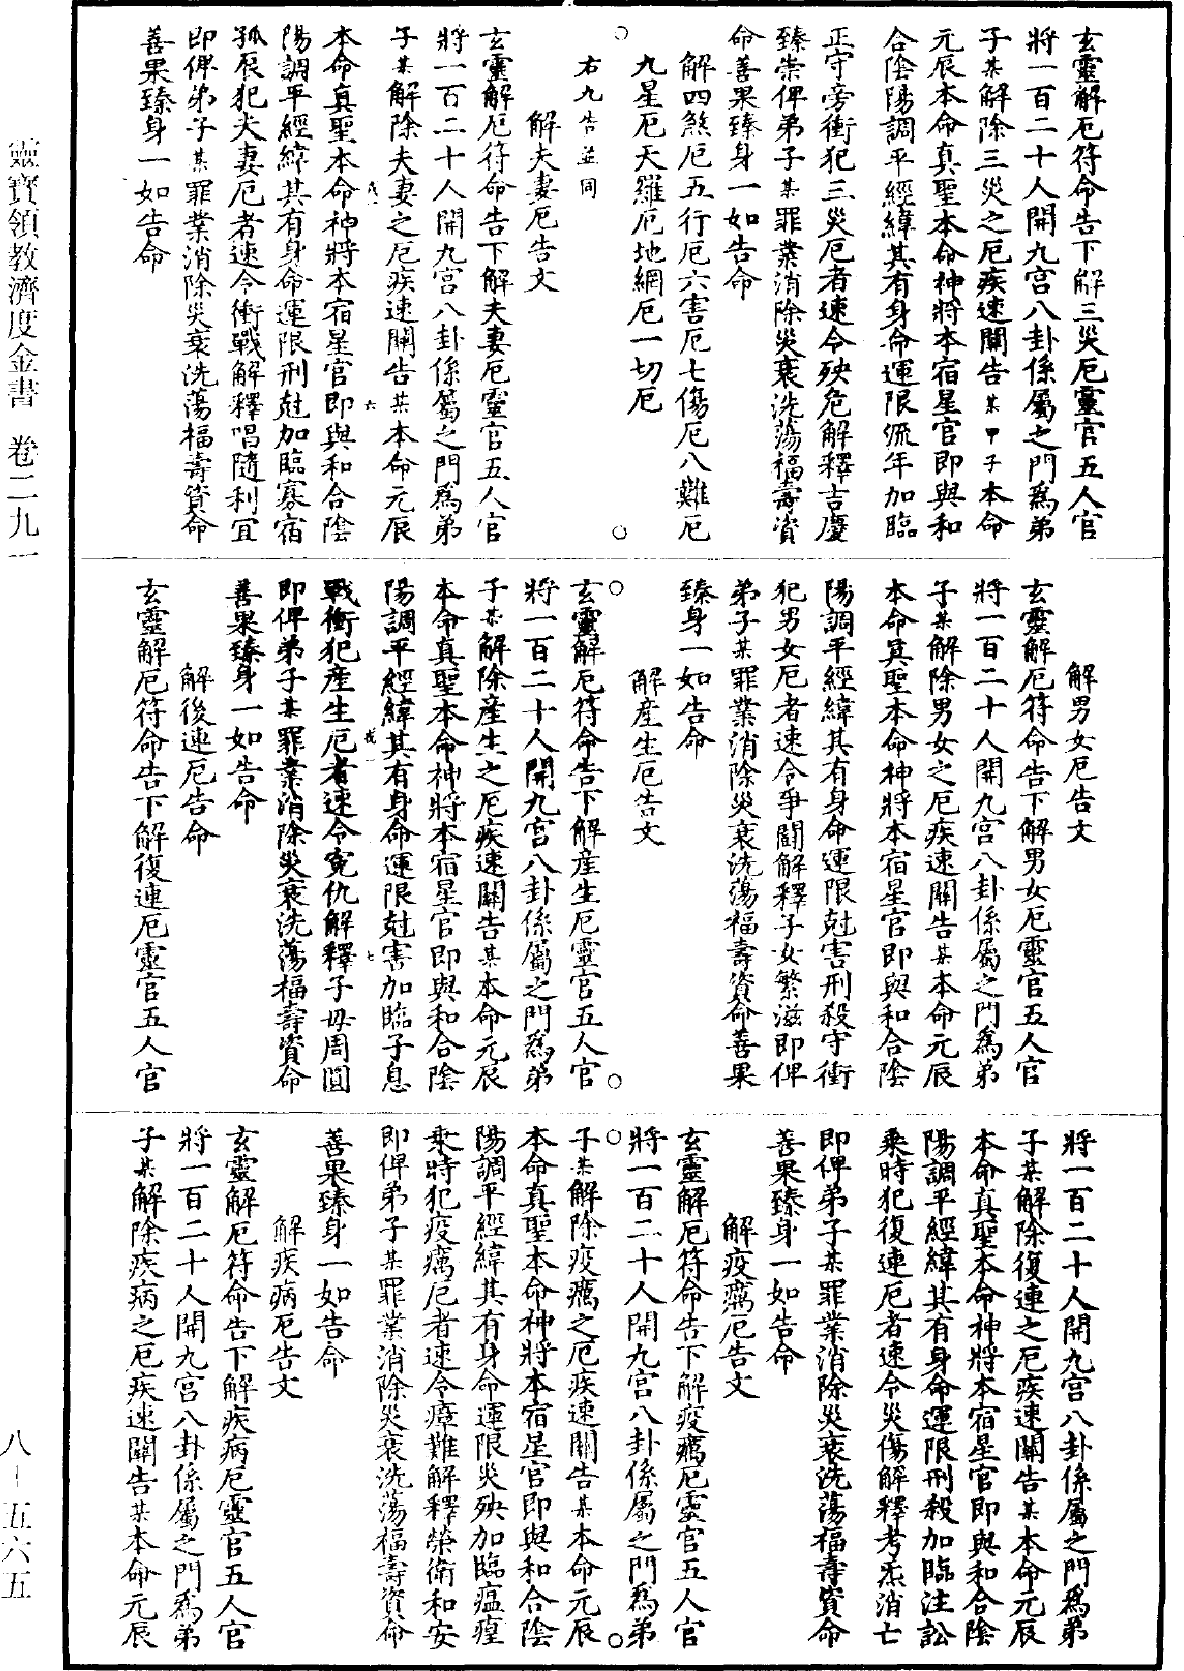 玄靈解厄符命告下解三災厄靈官五人官
將一百二十人開九宮八卦係屬之門為弟
子某解除三災之厄疾速關告某甲子本命
元辰本命真聖本命神將本宿星官即與和
合陰陽調平經緯其有身命運限流年加臨
正守旁衝犯三災厄者速令殃危解釋吉慶
臻崇俾弟子某罪業消除災衰洗蕩福壽資
命善果臻身一如告命
解四煞厄五行厄六害厄七傷厄八難厄
九星厄天羅厄地網厄一切厄
右九告並同
解夫妻厄告文
玄靈解厄符命告下解夫妻厄靈官五人官
將一百二十人開九宮八卦係屬之門為弟
子某解除夫妻之厄疾速關告某本命元辰
本命真聖本命神將本宿星官即與和合陰
陽調平經緯其有身命運限刑尅加臨寡宿
孤辰犯夫妻厄者速令衝戰解釋唱隨利宜
即俾弟子某罪業消除災衰洗蕩福壽資命
善果臻身一如告命
解男女厄告文
玄靈解厄符命告下解男女厄靈官五人官
將一百二十人開九宮八卦係屬之門為弟
子某解除男女之厄疾速關告某本命元辰
本命真聖本命神將本宿星官即與和合陰
陽調平經緯其有身命運限尅害刑殺守衝
犯男女厄者速令爭鬪解釋子女繁滋即俾
弟子某罪業消除災衰洗蕩福壽資命善果
臻身一如告命
解產生厄告文
玄靈解厄符命告下解產生厄靈官五人官
將一百二十人開九宮八卦係屬之門為弟
子某解除產生之厄疾速關告某本命元辰
本命真聖本命神將本宿星官即與和合陰
陽調平經緯其有身命運限尅害加臨子息
戰衝犯產生厄者速令冤仇解釋子母周圓
即俾弟子某罪業消除災衰洗蕩福壽資命
善果臻身一如告命
解後連厄告命
玄靈解厄符命告下解復連厄靈官五人官
將一百二十人開九宮八卦係屬之門為弟
子某解除復連之厄疾速關告某本命元辰
本命真聖本命神將本宿星官即與和合陰
陽調平經緯其有身命運限刑殺加臨注訟
乘時犯復連厄者速令災傷解釋考炁消亡
即俾弟子某罪業消除災衰洗蕩福壽資命
善果臻身一如告命
解疫癘厄告文
玄靈解厄符命告下解疫癘厄靈官五人官
將一百二十人開九宮八卦係屬之門為弟
子某解除疫癘之厄疾速關告某本命元辰
本命真聖本命神將本宿星官即與和合陰
陽調平經緯其有身命運限災殃加臨瘟瘴
乘時犯疫癘厄者速令瘴難解釋榮衛和安
即俾弟子某罪業消除災衰洗蕩福壽資命
善果臻身一如告命
解疾病厄告文
玄靈解厄符命告下解疾病厄靈官五人官
將一百二十人開九宮八卦係屬之門為弟
子某解除疾病之厄疾速關告某本命元辰
靈寶領教濟度金書 卷二九一
八-五六五